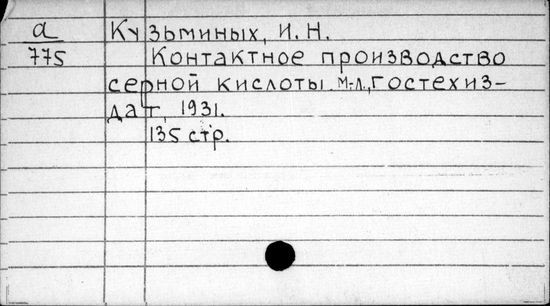 а Кузьминых, И. Н.
775 Контактное производство
серной кислоты. М.-Л., Гостехиз-
дат, 1931.
135 стр.